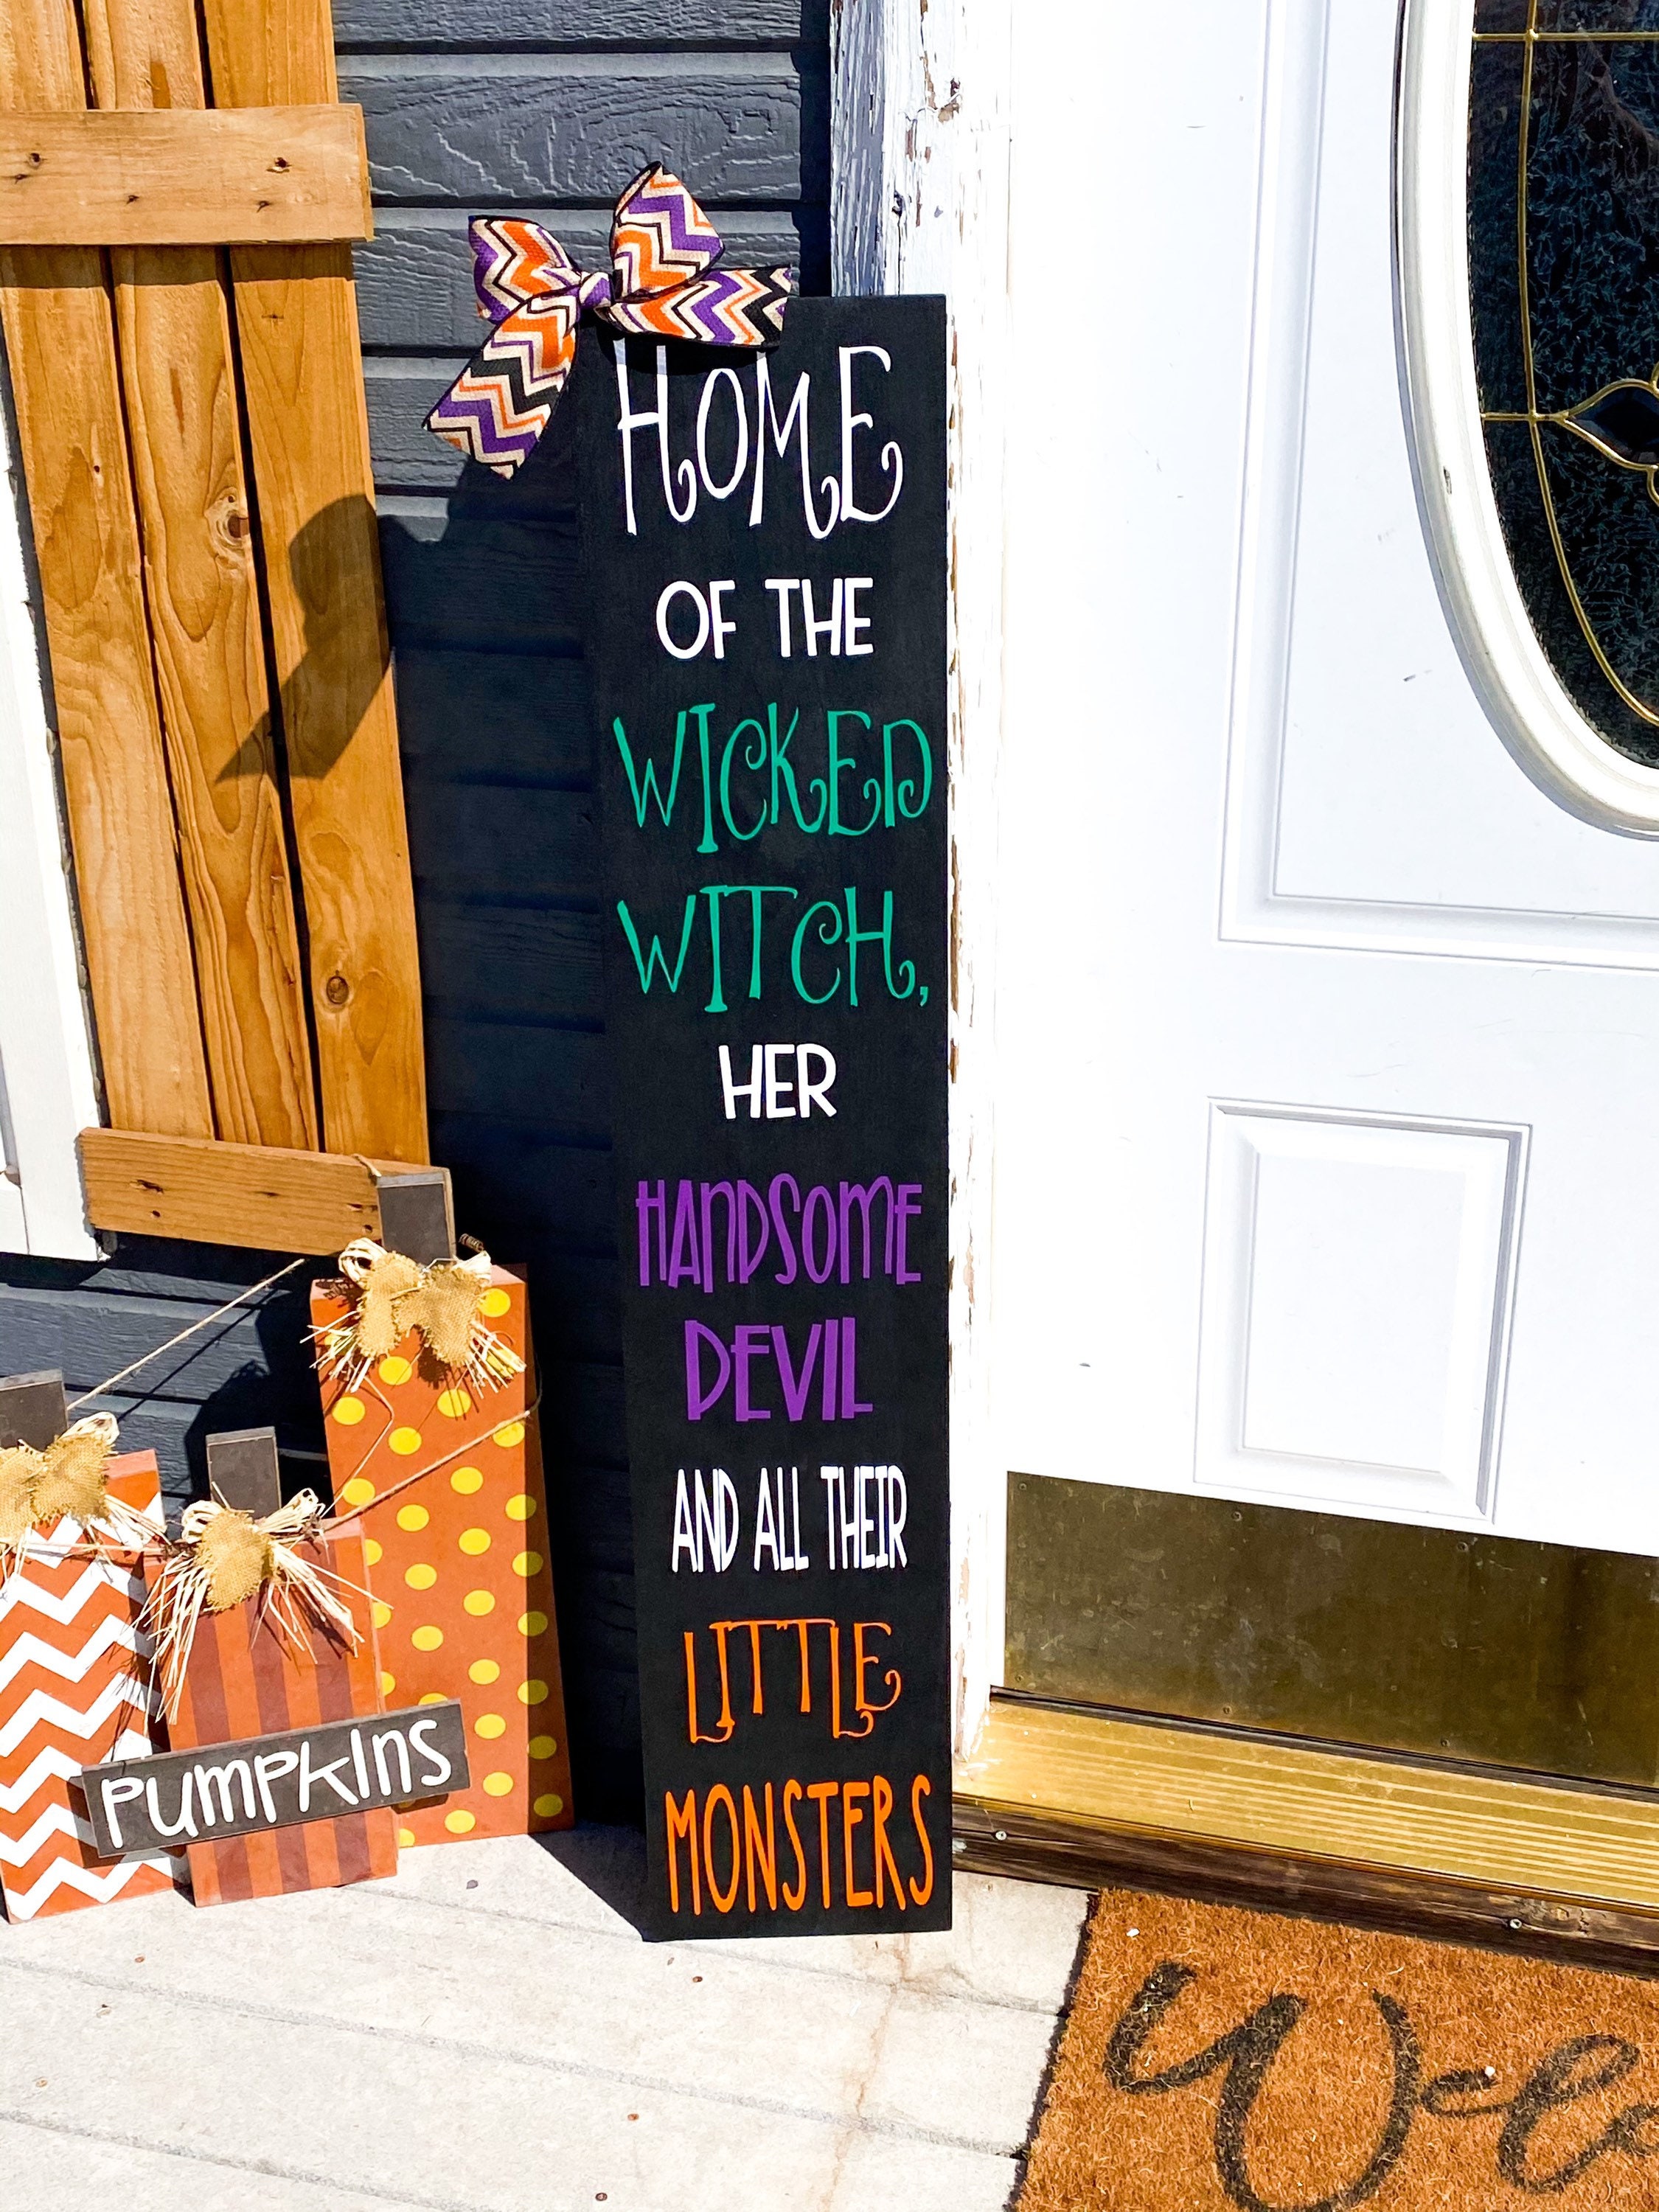 HOME
OF THE
WICKED
WITCH,
HER
HANDSOME
DEVIL
AND ALL THEIR
LITTLE
MONSTERS
PUMPKINS